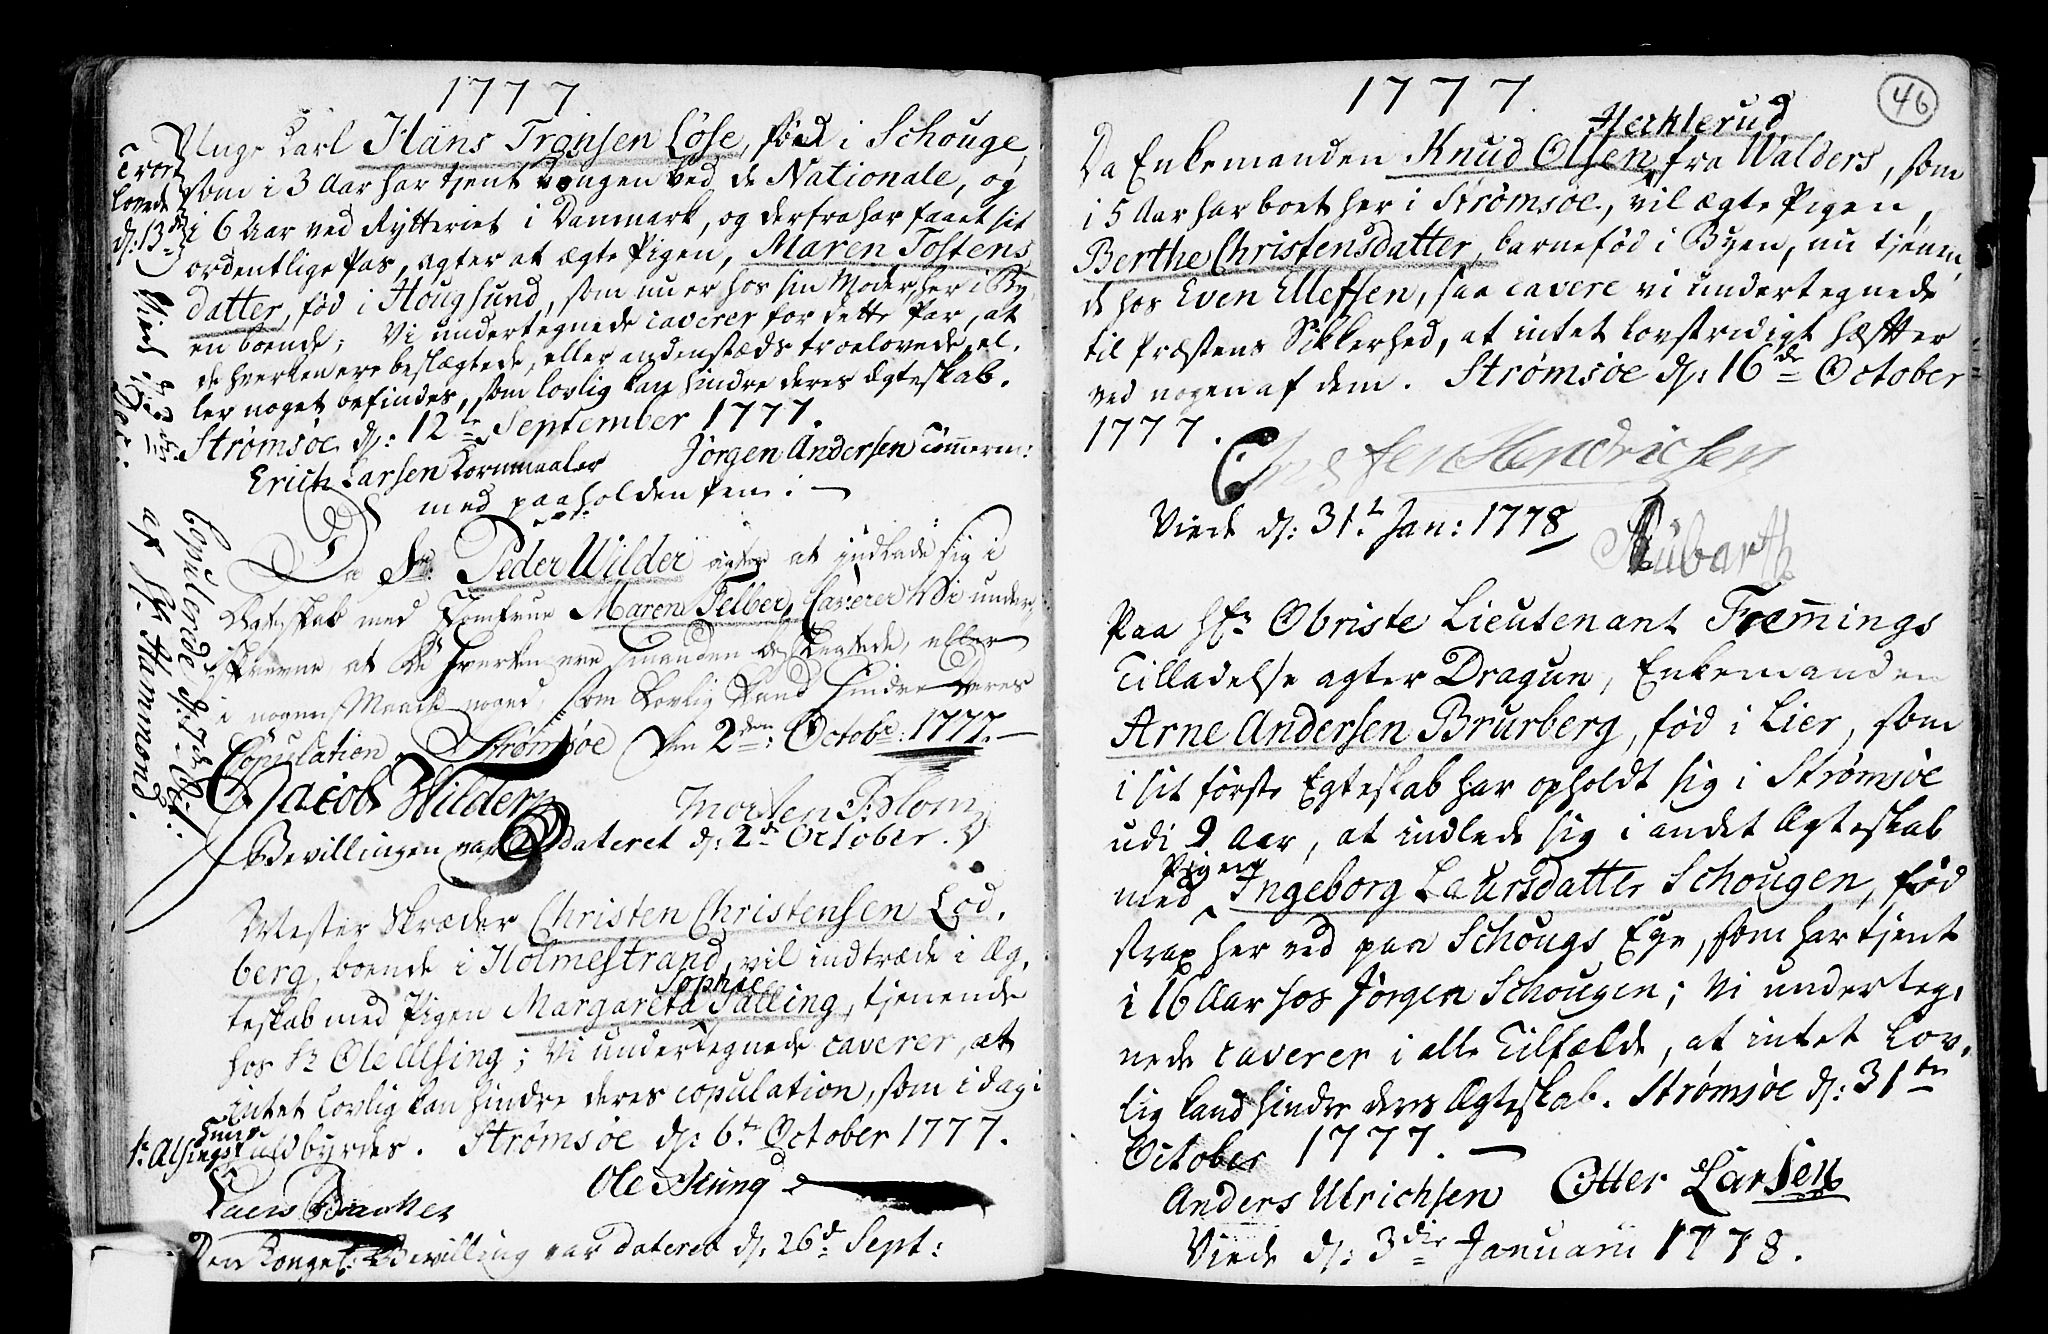 1777
Unge Karl Hans Tronsen Løse, fød i Schouge,
som i 3 Aar har tjent Kongen ved de Nationale, og
i 6 Aar ved Rytteriet i Danmark, og derfra har faaet sit
ordentlige Pas, agter at ægte Pigen, Maren Tostens
datter, fød i Hougsund, som nu er hos sin Moder her i By
en boende; Vi undertegnede caverer for dette Par, at
de hverken ere beslægtede, eller andenstæds troelovede, el.
ler noget befindes, som lovlig kan hindre deres Ægteskab.
Strømsøe d: 12te September 1777.
Erich Larsen Kornmaaler Jørgen Andersen Tømmerm:
med paaholden Pen: —
Troe
lovede
d: 13de
Viede d: 3die Oct:
Da Sr: Peder Wilder agter at indlade sig i
Ægteskab med Jomfrue Maren Felber, Caverer Vi under
skrevne at De hverken ere hinanden beslegtede, eller
i nogen Maade noged, som Lovlig Kand hindre deres
Copulation. Strømsøe den 2den: Octobr: 1777. —
Jacob Wilder Morten Blom
Bevillingen var dateret d: 2de October.
Copulerede d: 7de Oct:
af Hr: Hammond.
Mester Skræder Christen Christensen Lod,
berg, boende i Holmestrand, vil indtræde i Æg,
teskab med Pigen Margareta Sophie Salling, tjenende
hos Sr Ole Alsing; Vi undertegnede caverer, at
intet lovlig kan hindre deres copulation, som i dag i
Sr: Alsings Huus fuldbyrdes. Strømsøe d: 6te October 1777.
Ole Alsing
Den Kongel: Bevilling var dateret d. 26de Sept:
46
1777.
Da Enkemanden Knud Olsen Herklerud fra Walders, som
i 5 Aar har boet her i Strømsøe, vil ægte Pigen,
Berthe Christensdatter, barnefød i Byen, nu tjenen,
de hos Even Ellefsen, saa cavere vi undertegnede
til Præstens Sikkerhed, at intet lovstridigt hæfter
ved nogen af dem. Strømsøe d: 16de October
1777.
Christen Hendrichsen
Viede d: 31te Jan: 1778
Rubarth
Paa Hr: Obriste Lieutenant Fremmings
Tilladelse agter Dragun, Enkemanden
Arne Andersen Brurberg, fød i Lier, som
i sit første Egteskab har opholdt sig i Strømsøe
udi 9 Aar, at indlede sig i andet Ægteskab
med Pigen Ingeborg Laursdatter Schougen, fød
strax her ved paa Schougs Eye, som har tjent
i 16 Aar hos Jørgen Schougen; Vi underteg,
nede caverer i alle Tilfælde, at intet lov,
lig kand hindre deres Ægteskab. Strømsøe d: 31te
October 1777. —
Anders Ulrichsen Otter Larsen
Viede d: 3die Januarii 1778.